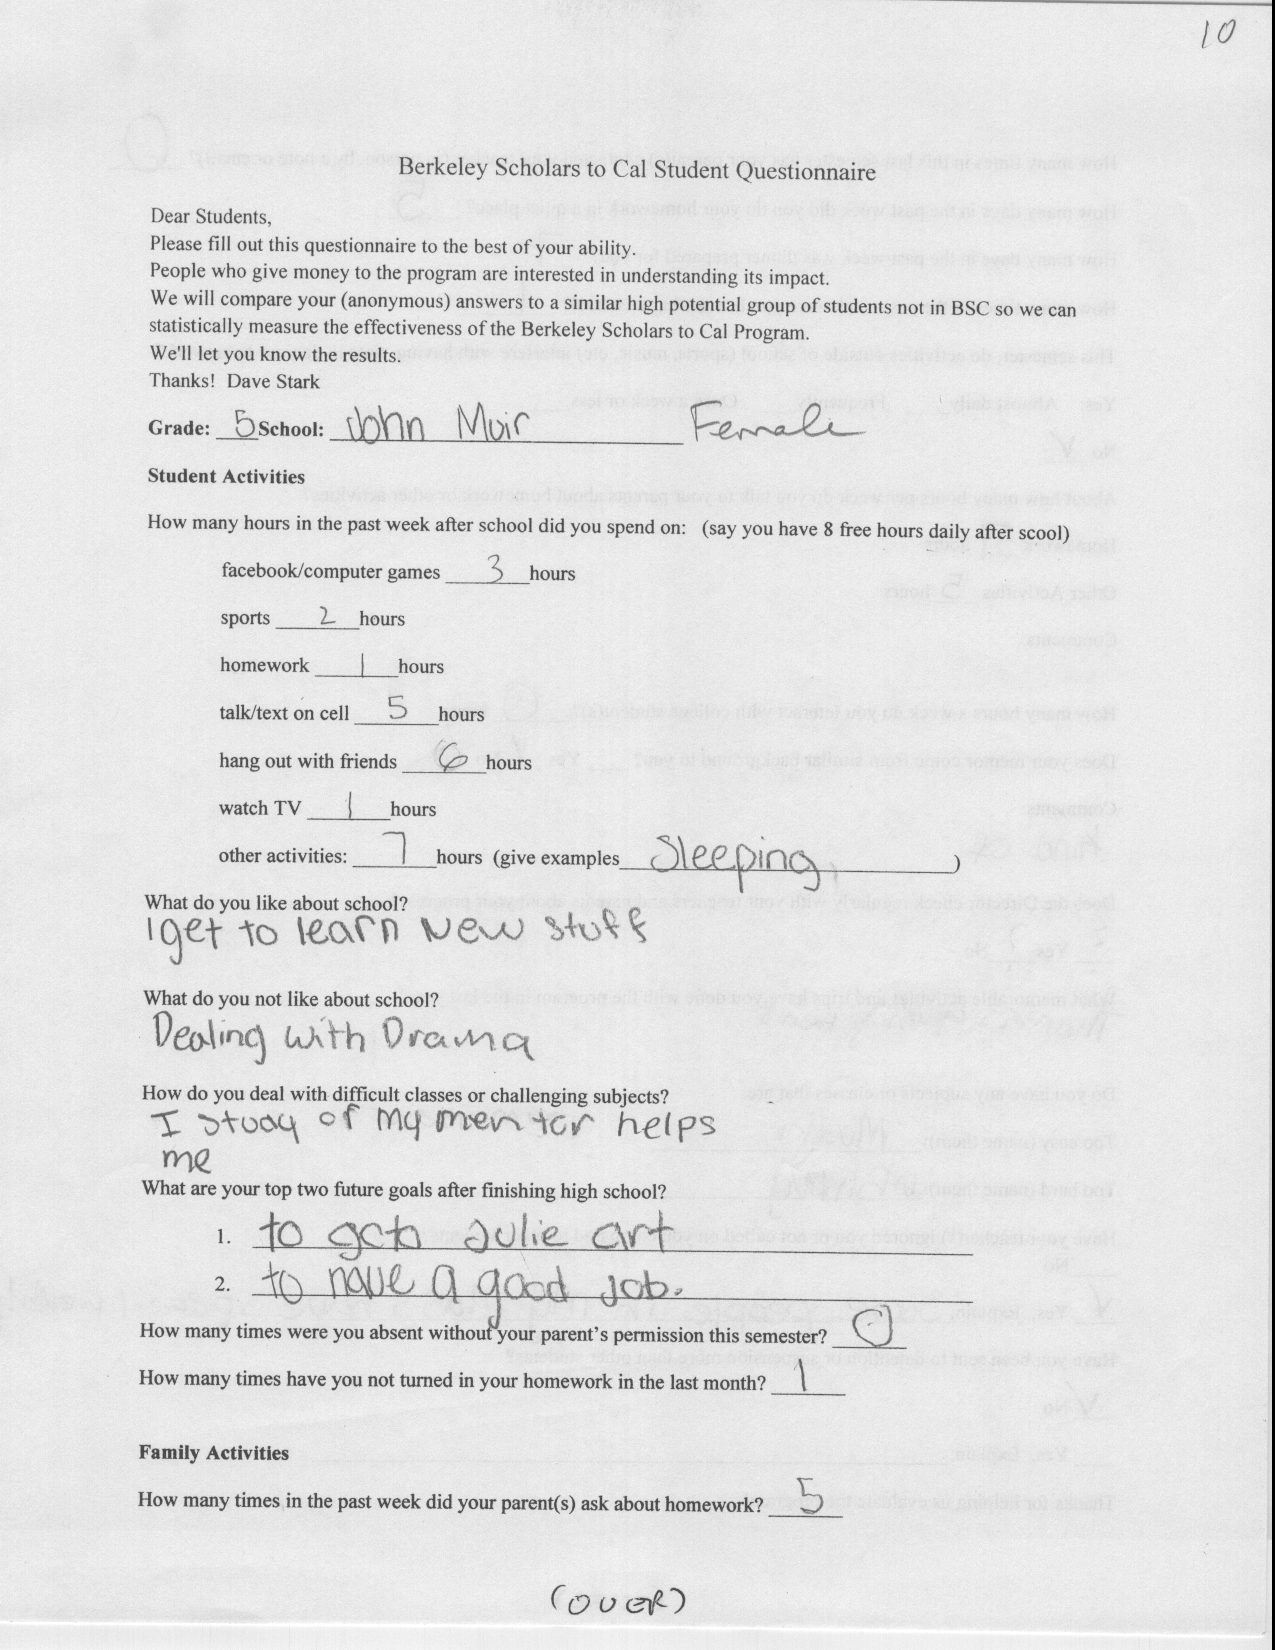 10
Berkeley Scholars to Cal Student Questionnaire
Dear Students,
Please fill out this questionnaire to the best of your ability.
People who give money to the program are interested in understanding its impact.
We will compare your (anonymous) answers to a similar high potential group of students not in BSC so we can
statistically measure the effectiveness of the Berkeley Scholars to Cal Program.
We'll let you know the results.
Thanks! Dave Stark
Grade: 5 School: John Muir Female
Student Activities
How many hours in the past week after school did you spend on: (say you have 8 free hours daily after scool)
facebook/computer games 3 hours
sports 2 hours
homework 1 hours
talk/text on cell 5 hours
hang out with friends 6 hours
watch TV 1 hours
other activities: 7 hours (give examples Sleeping, )
What do you like about school?
I get to learn New stuff
What do you not like about school?
Dealing with Drama
How do you deal with difficult classes or challenging subjects?
I study or my mentor helps
me
What are your top two future goals after finishing high school?
1. to goto Julie art
2. to have a good job.
How many times were you absent without your parent's permission this semester? 0
How many times have you not turned in your homework in the last month? 1
Family Activities
How many times in the past week did your parent(s) ask about homework? 5
(OVER)